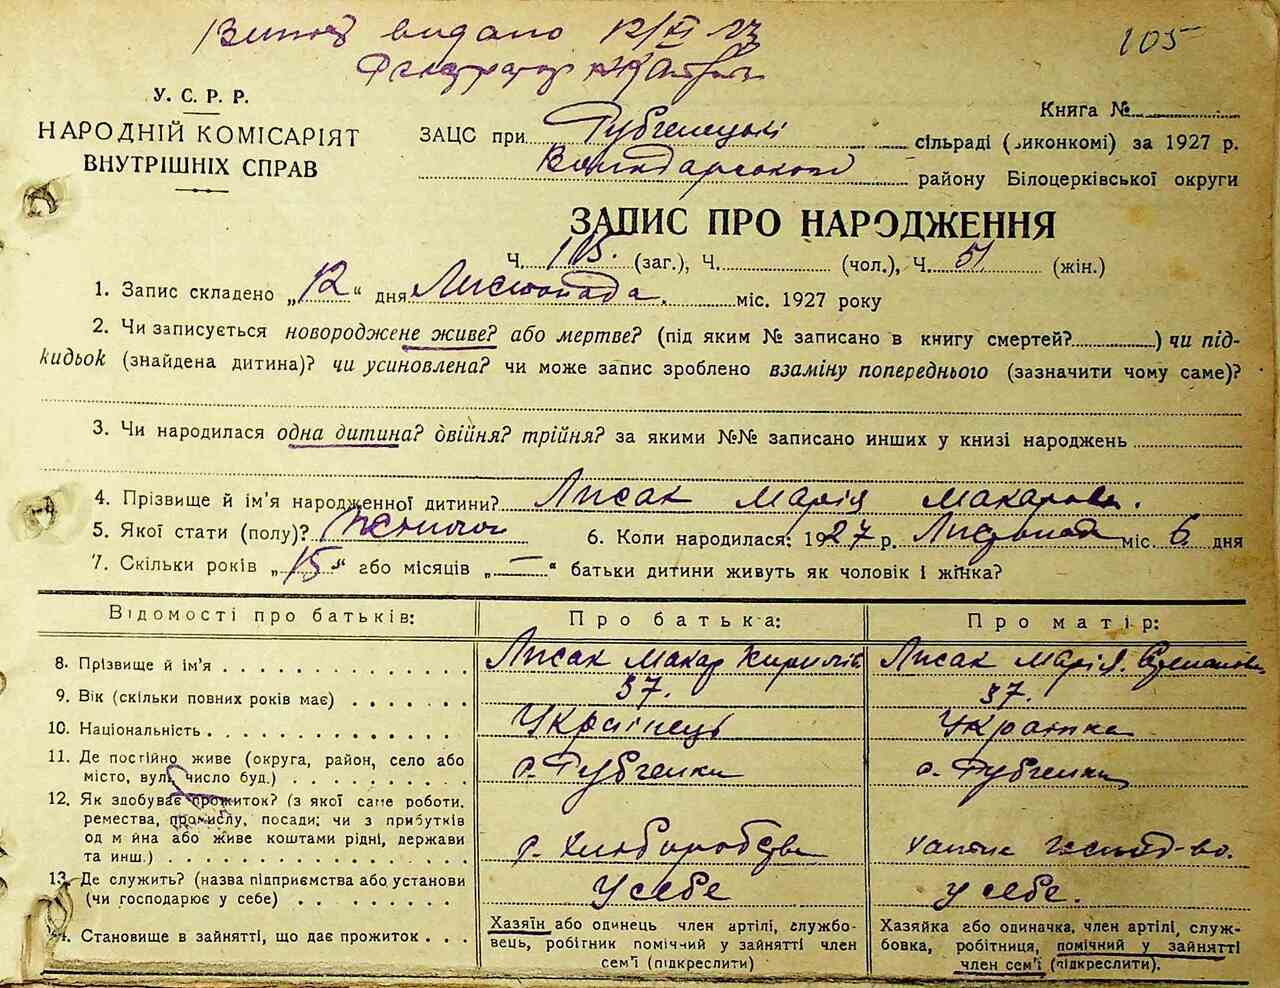 видано 12/XI 27
105
У. С. Р. Р.
НАРОДНІЙ КОМІСАРІЯТ
ВНУТРІШНІХ СПРАВ
Книга №
ЗАЦС при Трубченецькі сільраді (виконкомі) за 1927 р.
району Білоцерківської округи
ЗАПИС ПРО НАРОДЖЕННЯ
Ч. 105. (заг.), Ч. (чол.), Ч. 51 (жін.)
1. Запис складено „12“ дня Листопада. міс. 1927 року
2. Чи записується новороджене живе? або мертве? (під яким № записано в книгу смертей?) чи під-
кидьок (знайдена дитина)? чи усиновлена? чи може запис зроблено взаміну попереднього (зазначити чому саме)?
3. Чи народилася одна дитина? двійня? трійня? за якими №№ записано инших у книзі народжень
4. Прізвище й ім'я народженної дитини? Лисак Марія Макарова.
5. Якої стати (полу)? Жіночої 6. Коли народилася: 1927 р. Листопад міс. 6 дня
7. Скільки років „15“ або місяців „—“ батьки дитини живуть як чоловік і жінка?
Відомості про батьків: Про батька: Про матір:
8. Прізвище й ім'я Лисак Макар Кирилів Лисак Марія. Степанова
9. Вік (скільки повних років має) 37. 37.
10. Національність Українець Українка
11. Де постійно живе (округа, район, село або
місто, вул., число буд.) с. Трубченки с. Трубченки
12. Як здобуває прожиток? (з якої саме роботи,
ремества, промислу, посади; чи з прибутків
од майна або живе коштами рідні, держави
та инш.) с. Хліборобство хатнє господ-во.
13. Де служить? (назва підприємства або установи
(чи господарює у себе) У себе у себе.
14. Становище в зайнятті, що дає прожиток Хазяїн або одинець член артілі, службо-
вець, робітник помічний у зайнятті член
сем'ї (підкреслити)
Хазяйка або одиначка, член артілі, служ-
бовка, робітниця, помічний у зайнятті
член сем'ї (підкреслити).